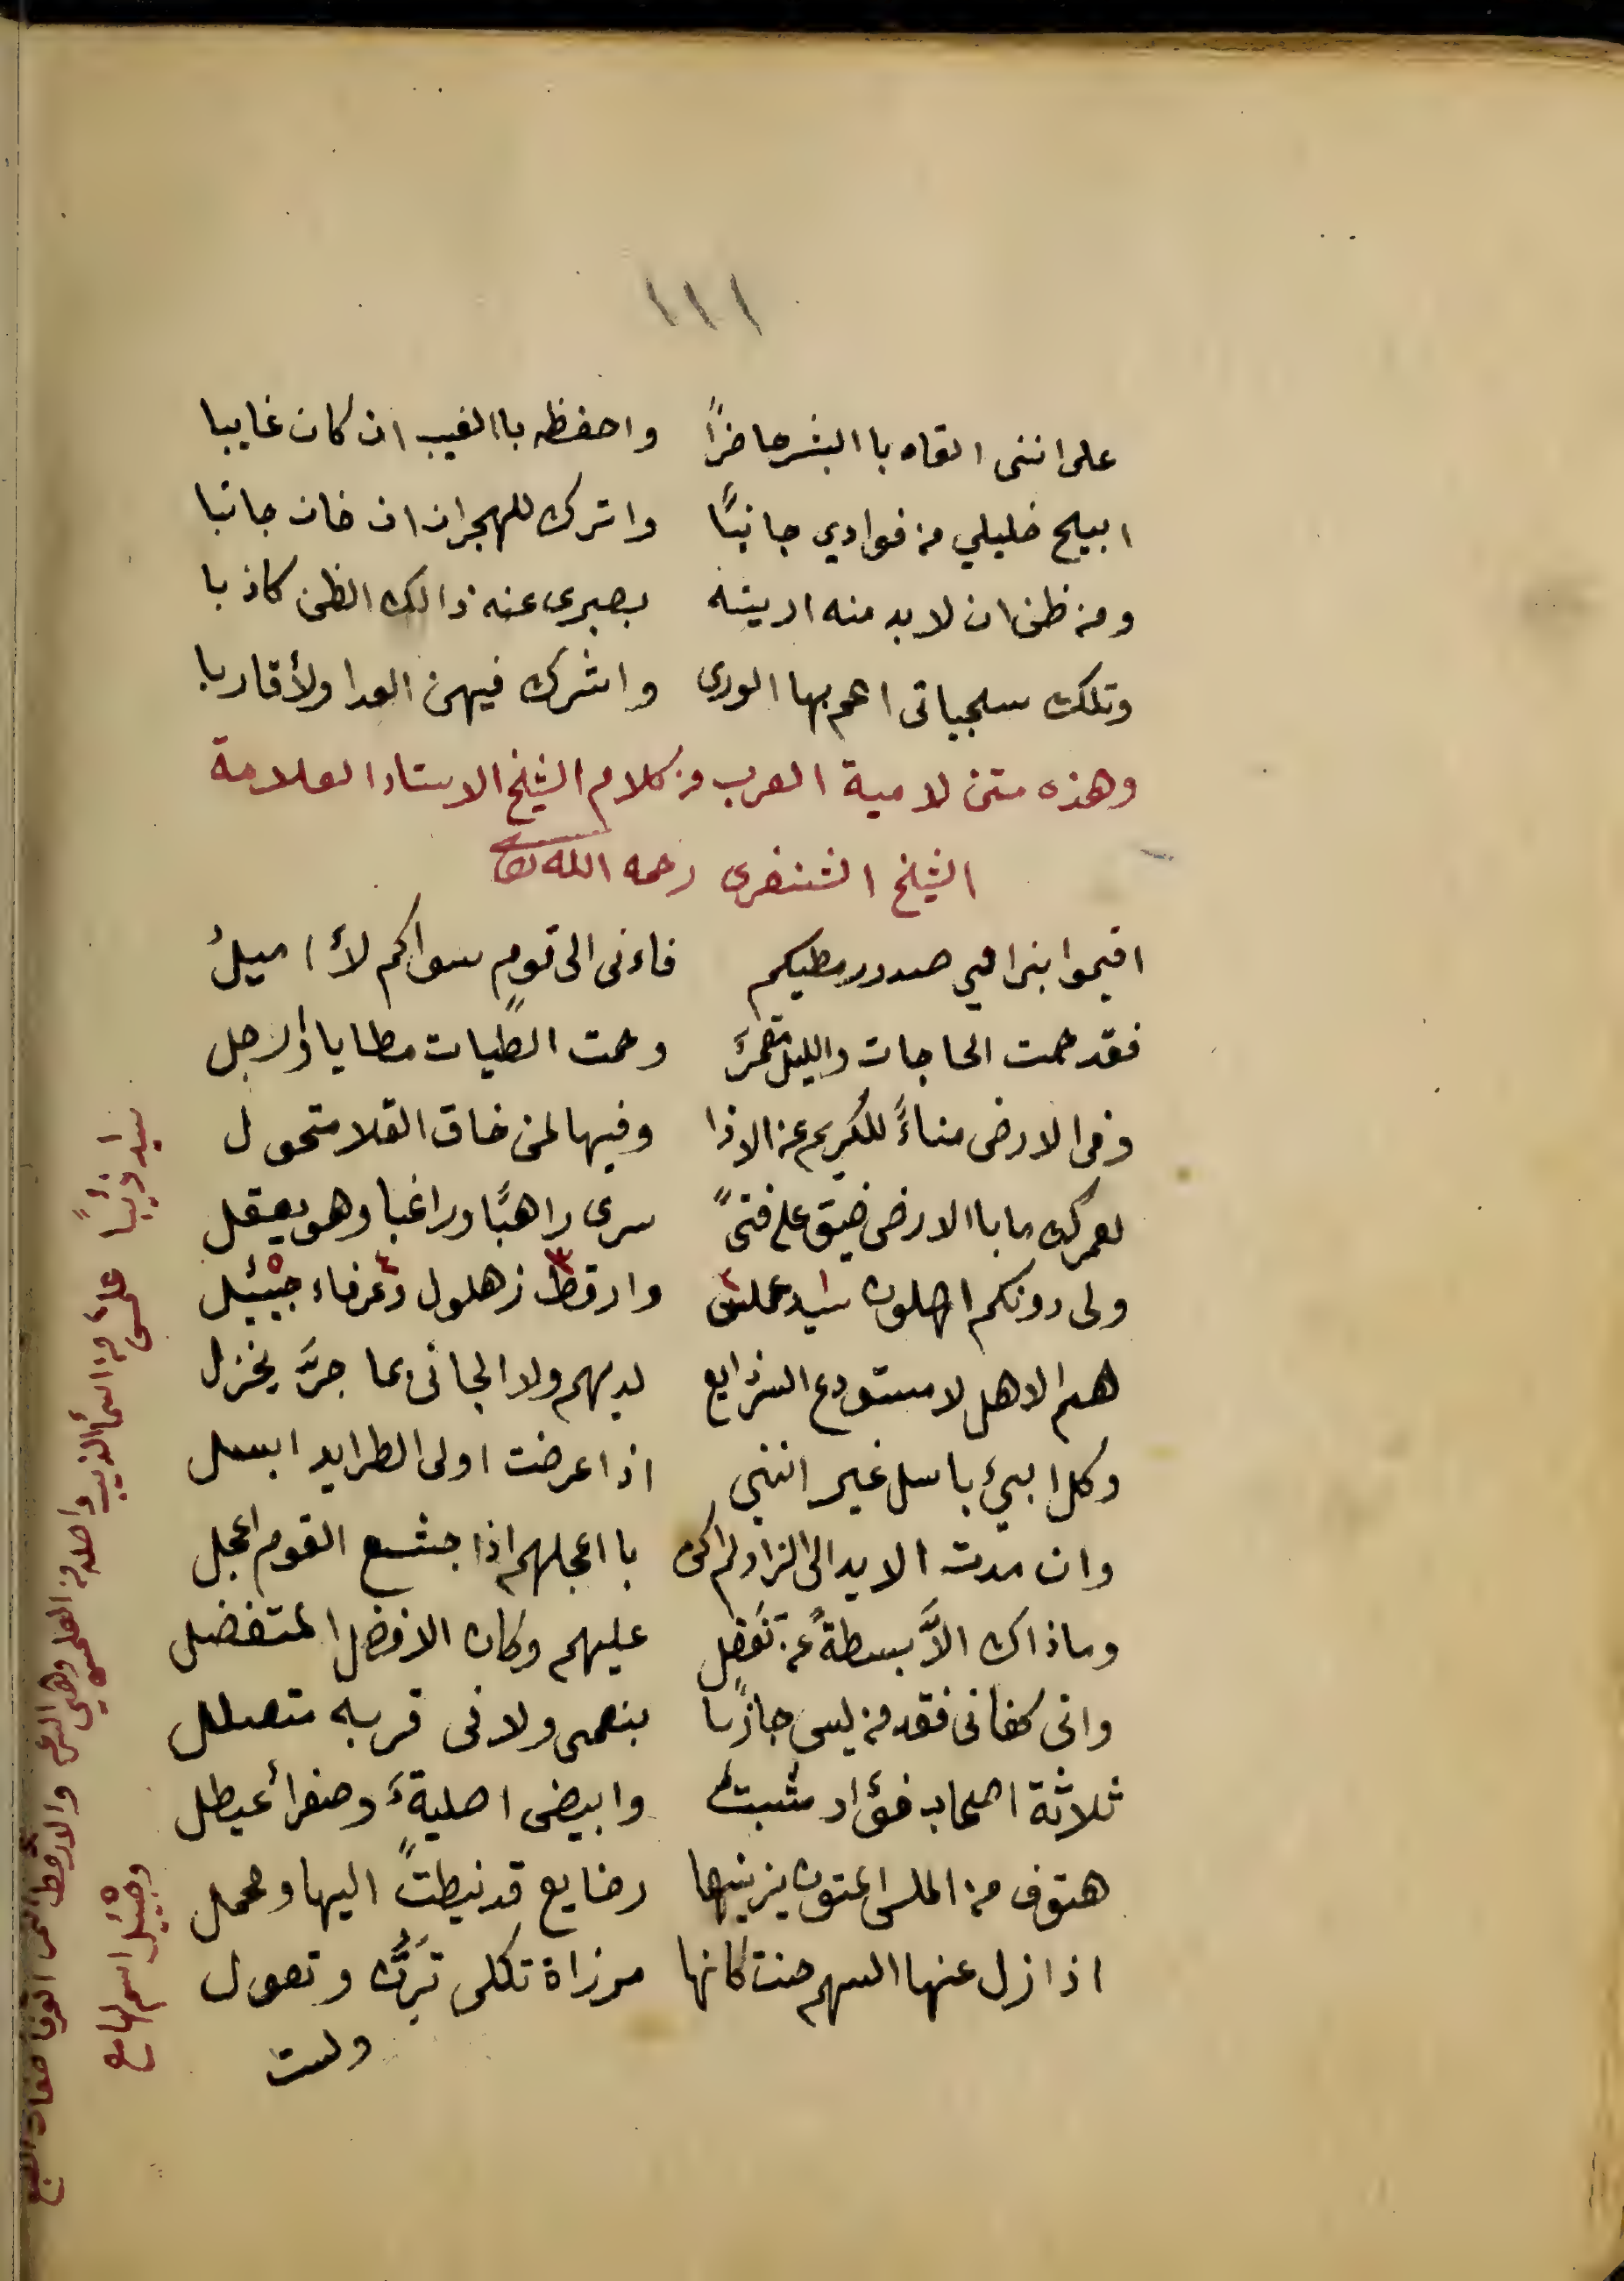 ١١١
على انني القاه باالبشر حاضراً واحفظه باالغيب ان كان غايبا
ابيح خليلي من فوادي جانبًا واترك للهجران ان خان جانبا
ومن ظن ان لا بد منه اريته بصبرى عنه ذالك الظن كاذبا
وتلك سجياتى اعم بها الورى واشرك فيهن العدا ولأقاربا
وهذه متن لامية العرب من كلام الشيخ الاستاد العلامة
الشيخ الشنفرى رحمه الله تعالى
اقيموا بنى امي صدور مطيكم فاءنى الى قوم سواكم لأ اميلُ
فقد حمت الحاجات والليل مقمرً وحمت الطيات مطايا وارحل
وفى الارض مناءً للكريم عن الاذا وفيها لمن خاف القلا متحول
لعمرك ما باالارض ضيق على فتىً سرى راهبًا وراغبا وهو يعقل
ولى دونكم اهلون سيد عملس وارقط زهلول وعرفاء جيئل
هم الاهل لا مستودع السر ذايع لديهم ولا الجانى بما جرَّ يخزل
وكل ابيٍ باسل غير انني اذا عرضت اولى الطرايد ابسل
وان مدت الايد الى الزاد لم اكن باعجلهم اذا جشع القوم اعجل
وماذاك الاَّ بسطةً عن تفضل عليهم وكان الافضل المتفضل
وانى كفانى فقد من ليس جازيا بنعمى ولا فى قربه متعلل
ثلاثة اصحاب فؤاد مشبت وابيض اصليةً وصفرأ عيطل
هتوف من الملس المتون يزينها رضايع قد نيطت اليها ومحمل
اذا زل عنها السهم حنت كانها مرزاة تكلى تَرِنُّ وتعول
ولست
سيد ذئبًا عملس من اسمأ الذيب واصله من العلسى وهي السرعه والارقط النمر العرفا صفات الضبع
وجيئل اسم لها مع